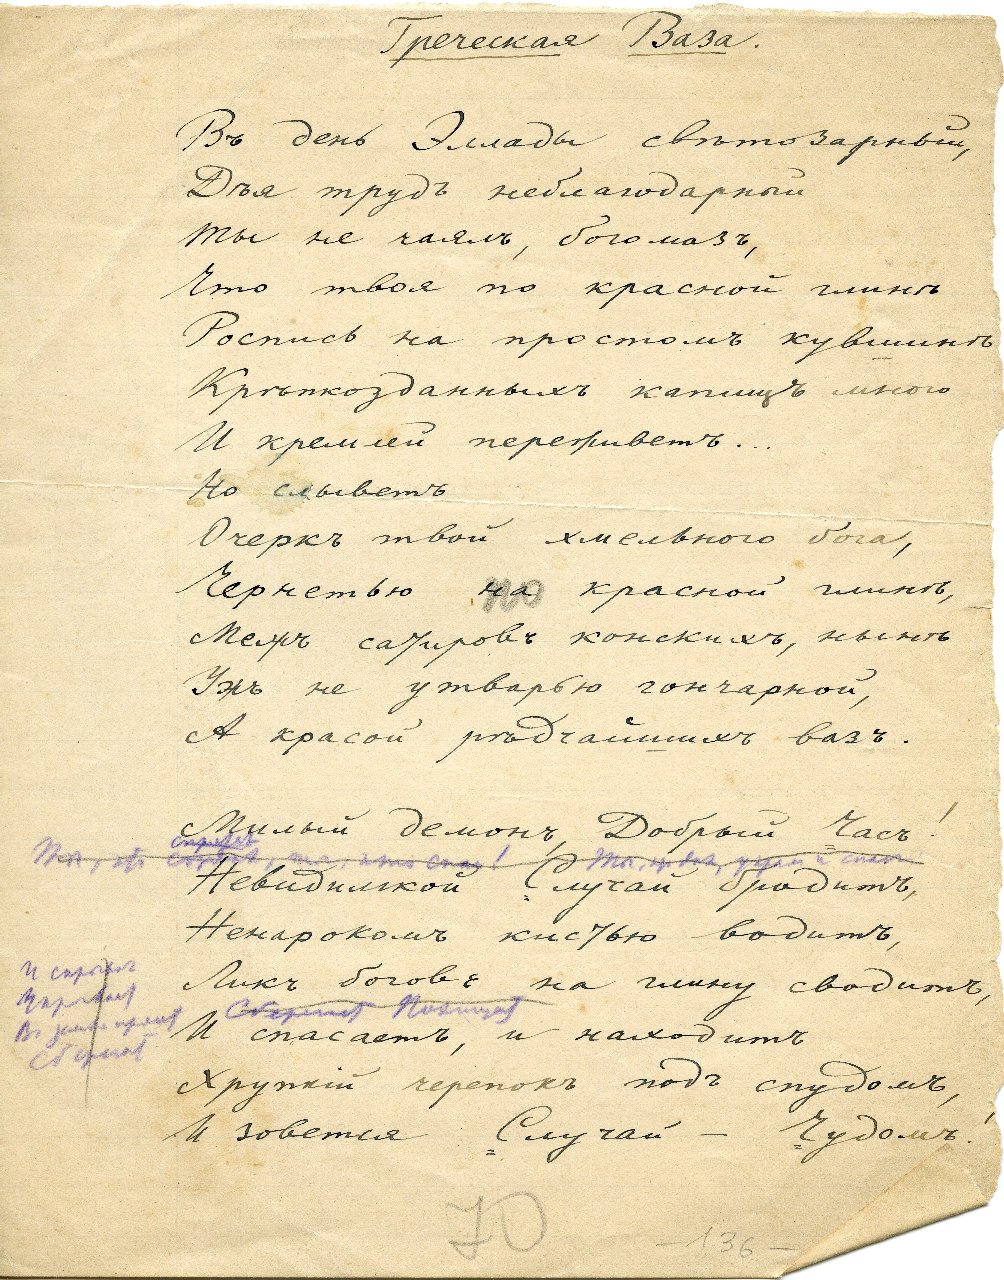 Греческая Ваза.
Въ день Эллады свѣтозарный,
Дѣя трудъ неблагодарный
Ты не чаялъ, богомазъ,
Что твоя по красной глинѣ
Роспись на простомъ кувшинѣ
Крѣпкозданныхъ капищъ много
И кремлей переживетъ...
Но слыветъ
Очеркъ твой хмельного бога,
Чернетью на по красной глинѣ,
Межъ сатировъ конскихъ, нынѣ
Ужъ не утварью гончарной,
А красой рѣдчайшихъ вазъ.
Милый демонъ, Добрый Часъ!
Невидимкой Случай бродитъ,
Ненарокомъ кистью водитъ,
Ликъ боговъ на глину сводитъ,
И спасаетъ, и находитъ
Хрупкій черепокъ подъ спудомъ,
И зовется Случай — Чудомъ!
Ю
— 136 —